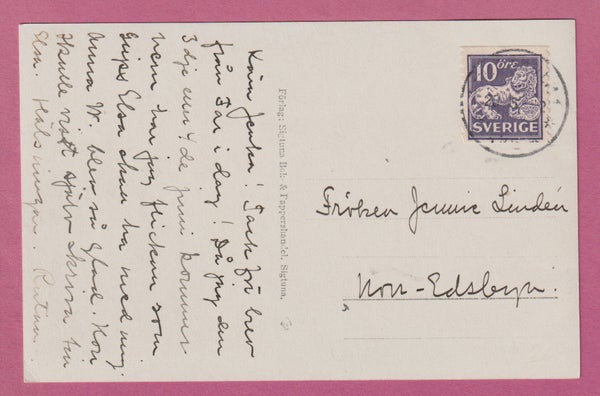 Kära Jenka! Tack för brev
från Far i dag! Då jag den
3dje eller 4de juni kommer
hem har jag flickan som
Elsa skall ha med mig.
Anna W. blev så glad. Hon
skulle visst själv skriva till
Elsa. Hälsningar.
Förlag: Sigtuna Bok- & Pappershandel, Sigtuna.
10 ÖRE
SVERIGE
Fröken Jennie Lindén
Edsbyn.